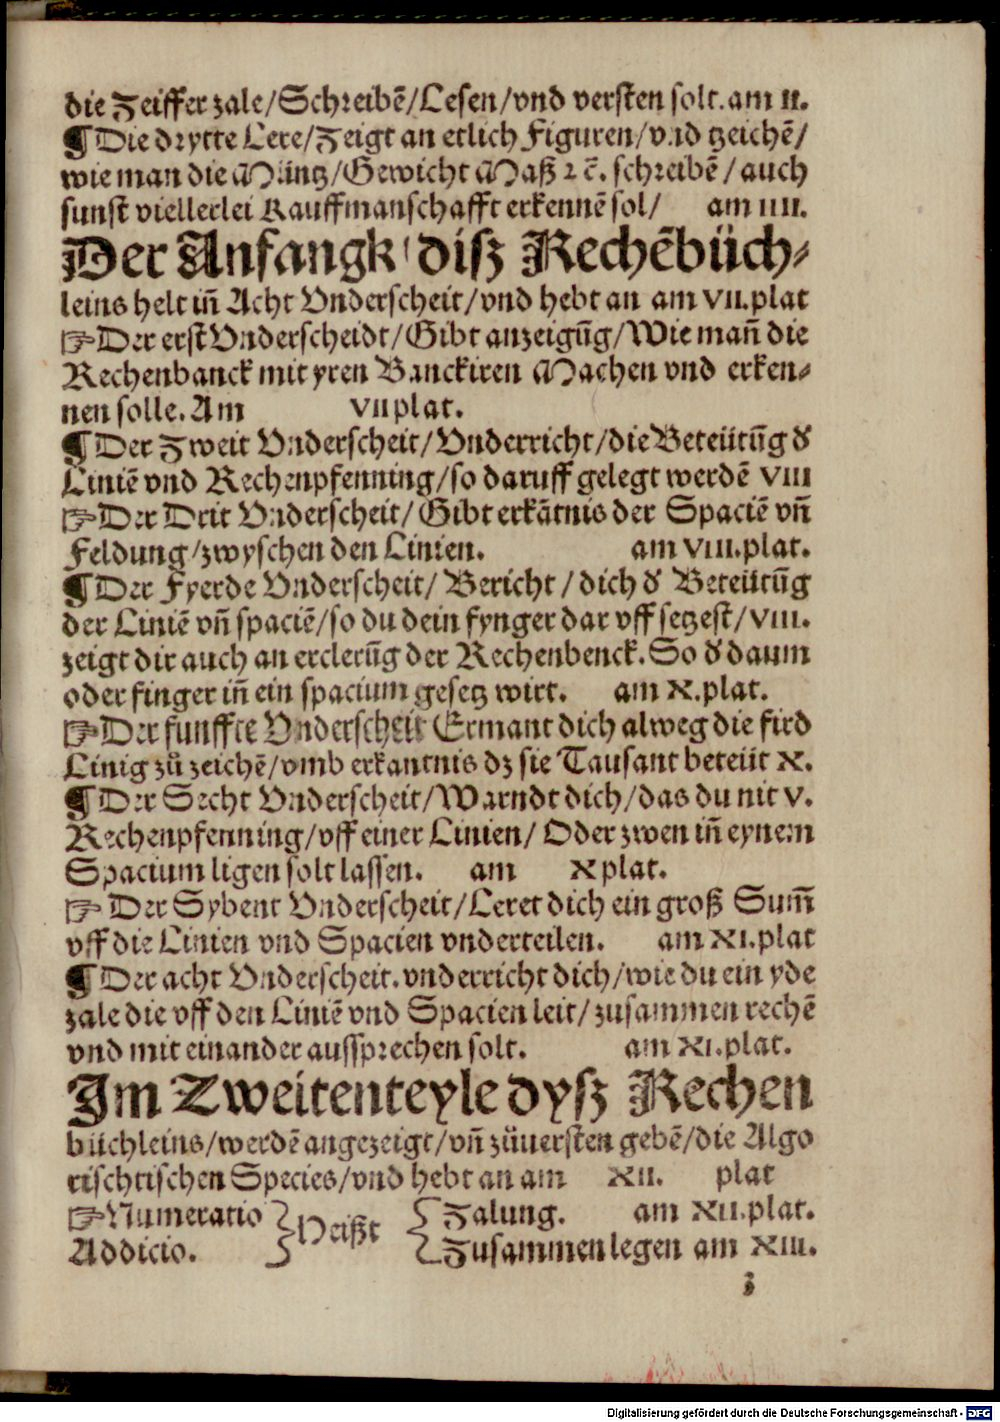 die Zeiffer zale/Schreibē/Lesen/vnd versten solt. am II.
¶Die drytte Lere/Zeigt an etlich Figuren/vnd tzeichē/
wie man die Müntz/Gewicht Maß ⁊ c̄. schreibē/auch
sunst viellerlei Kauffmanschafft erkennē sol/ am IIII.
Der Anfangk/disz Rechēbüch⸗
leins helt in̄ Acht Vnderscheit/vnd hebt an am VII.plat
☞Der erst Vnderscheidt/Gibt anzeigūg/Wie man̄ die
Rechenbanck mit yren Banckiren Machen vnd erken⸗
nen solle. Am VII plat.
¶Der Zweit Vnderscheit/Vnderricht/die Beteütūg d̕
Liniē vnd Rechenpfenning/so daruff gelegt werdē VIII
☞Der Drit Vnderscheit/Gibt erkātnis der Spaciē vn̄
Feldung/zwyschen den Linien. am VIII.plat.
¶Der Fyerde Vnderscheit/Bericht/dich d̕ Beteütūg
der Liniē vn̄ spaciē/so du dein fynger dar vff setzest/VIII.
zeigt dir auch an erclerūg der Rechenbenck. So d̕ daum
oder finger in̄ ein spacium gesetz wirt. am X.plat.
☞Der funffte Vnderscheit Ermant dich alweg die fird
Linig zů zeichē/vmb erkantnis dz sie Tausant beteüt X.
¶Der Secht Vnderscheit/Warndt dich/das du nit V.
Rechenpfenning/vff einer Linien/Oder zwen in̄ eynem
Spacium ligen solt lassen. am X plat.
☞Der Sybent Vnderscheit/Leret dich ein groß Sum̄
vff die Linien vnd Spacien vnderteilen. am XI.plat
¶Der acht Vnderscheit. vnderricht dich/wie du ein yde
zale die vff den Liniē vnd Spacien leit/zusammen rechē
vnd mit einander aussprechen solt. am XI.plat.
Im Zweitenteyle dysz Rechen
büchleins/werdē angezeigt/vn̄ züuersten gebē/die Algo
rischtischen Species/vnd hebt an am XII. plat
☞Numeratio } Heißt { Zalung. am XII.plat.
Addicio. } { Zusammenlegen am XIII.
Digitalisierung gefördert durch die Deutsche Forschungsgemeinschaft - DFG